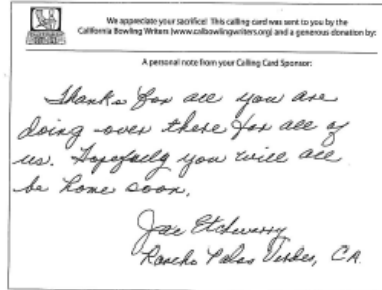 We appreciate your sacrifice! This calling card was sent to you by the
California Bowling Writers (www.calbowlingwriters.org) and a generous donation by:
A personal note from your Calling Card Sponsor:
Thanks for all you are
doing over there for all of
us. Hopefully you will all
be home soon.
Etcheverry
Rancho Palos Verdes, CA